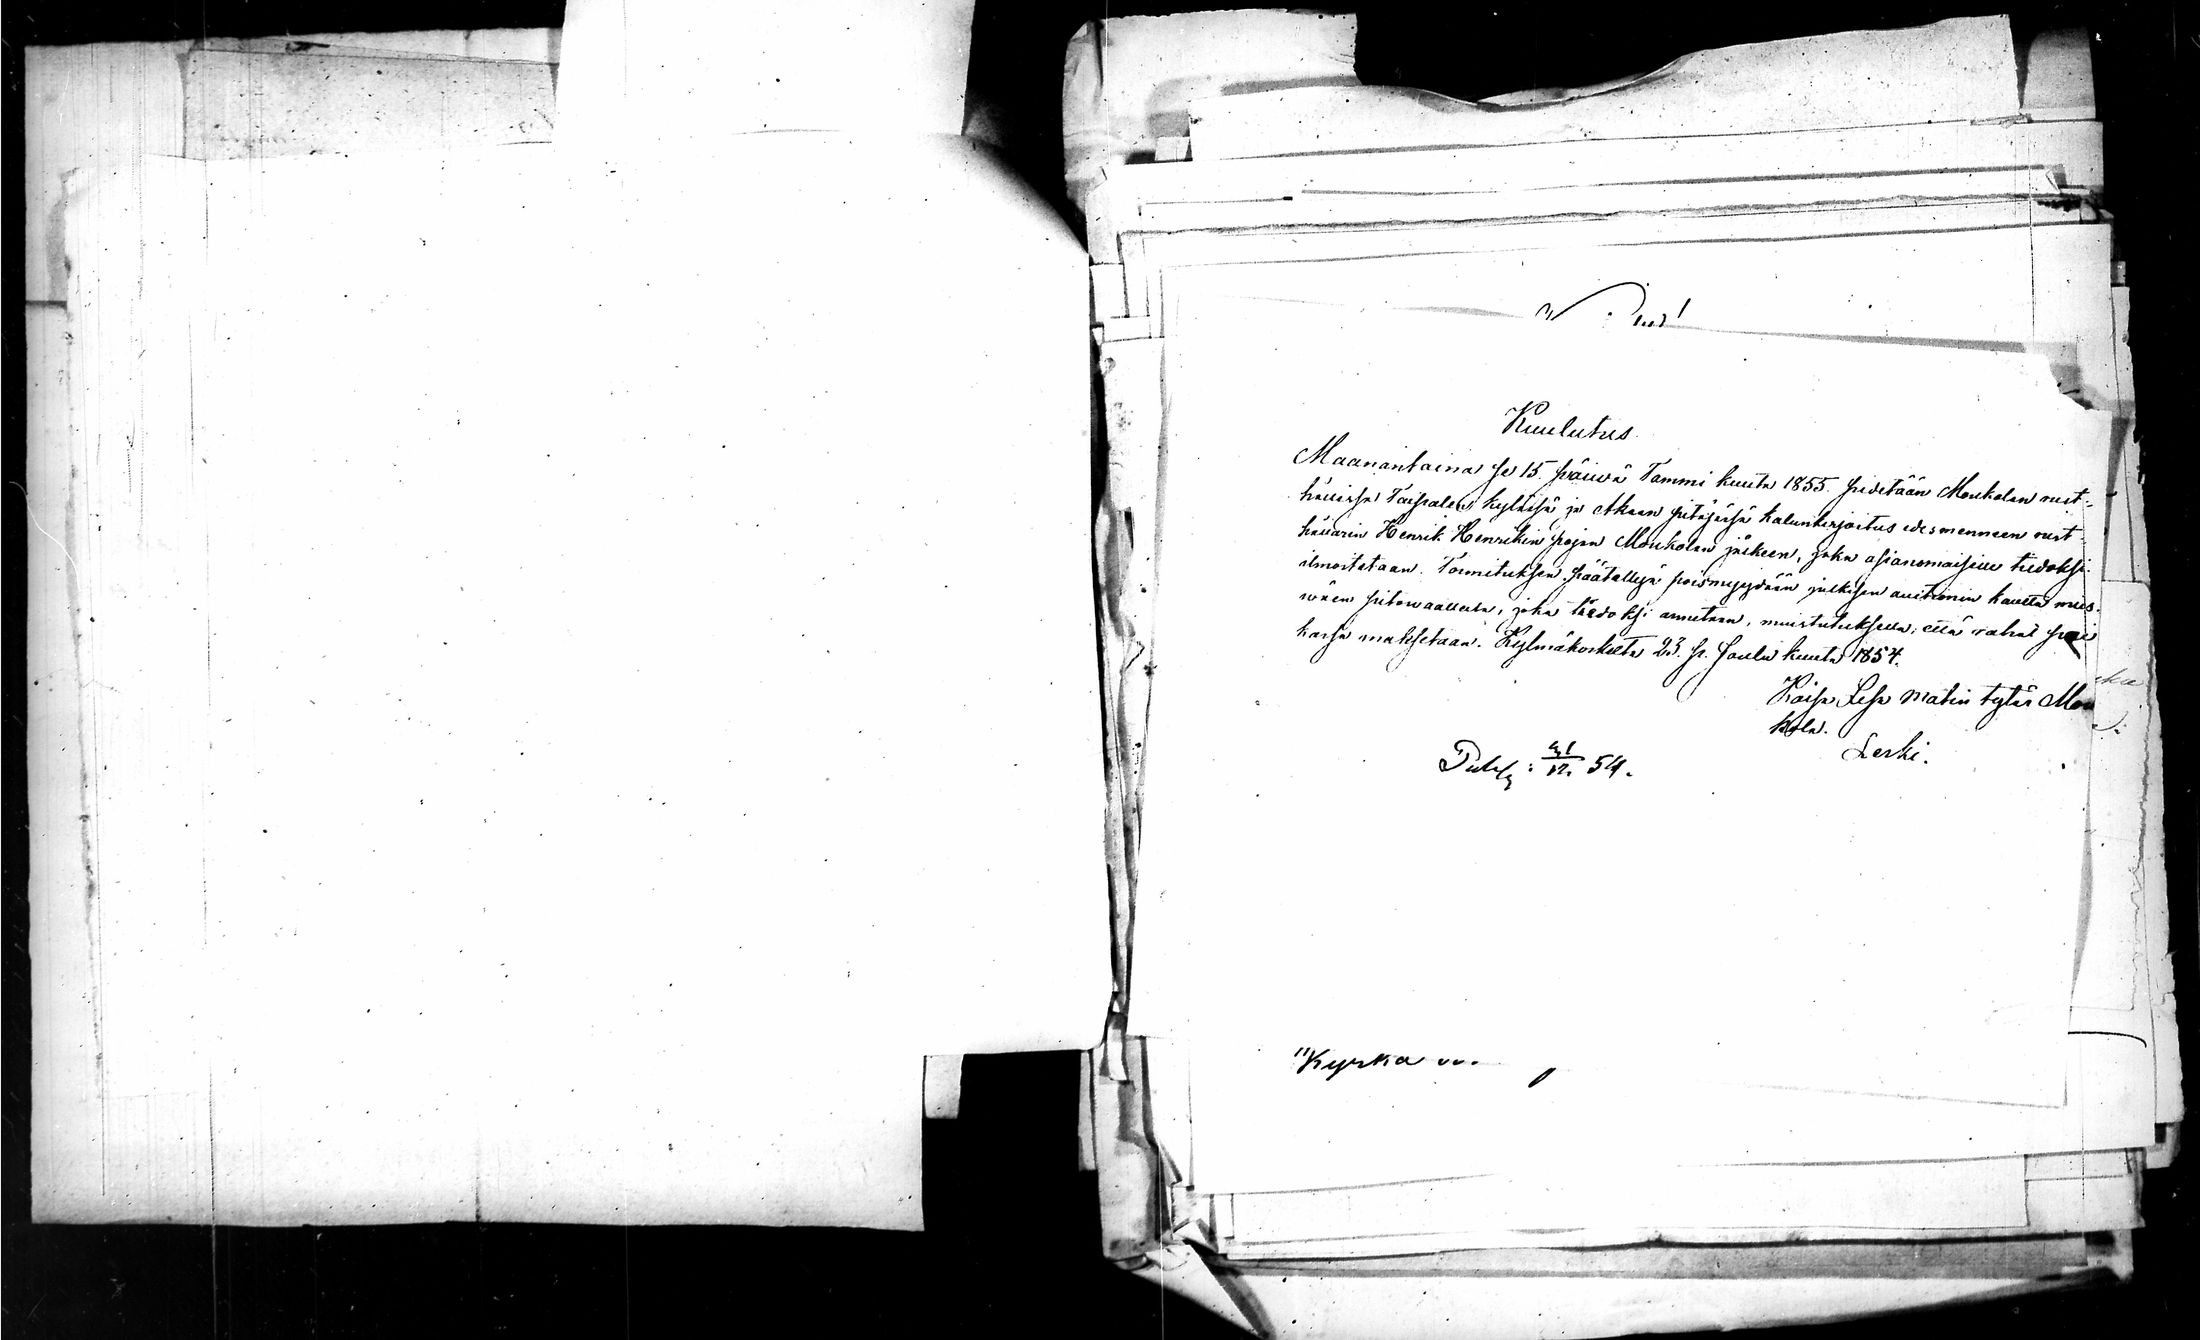 Kuulutus
Maanantaina se 15. päivä Tammi kuuta 1855. pidetään Moukolan rust-
hållissa Taipalen kylässä ja Akaan pitäjässä kalunkirjoitus edesmenneen rust-
hållarin Henrik Henrikin pojan Moukolan jälkeen, joka asianomaisille tiedoksi
ilmoitetaan. Toimituksen päätettyä poismyydään julkisen auktionin kautta
joka tiedoksi annetaan, muistutuksella; että rahat
maksetaan. Kylmäkoskelta 23. p. Joulu kuuta 1854.
Kaisa Lisa Matin tytär Mou
kola.
Leski.
Publ: 12. 54.
"Kyrka